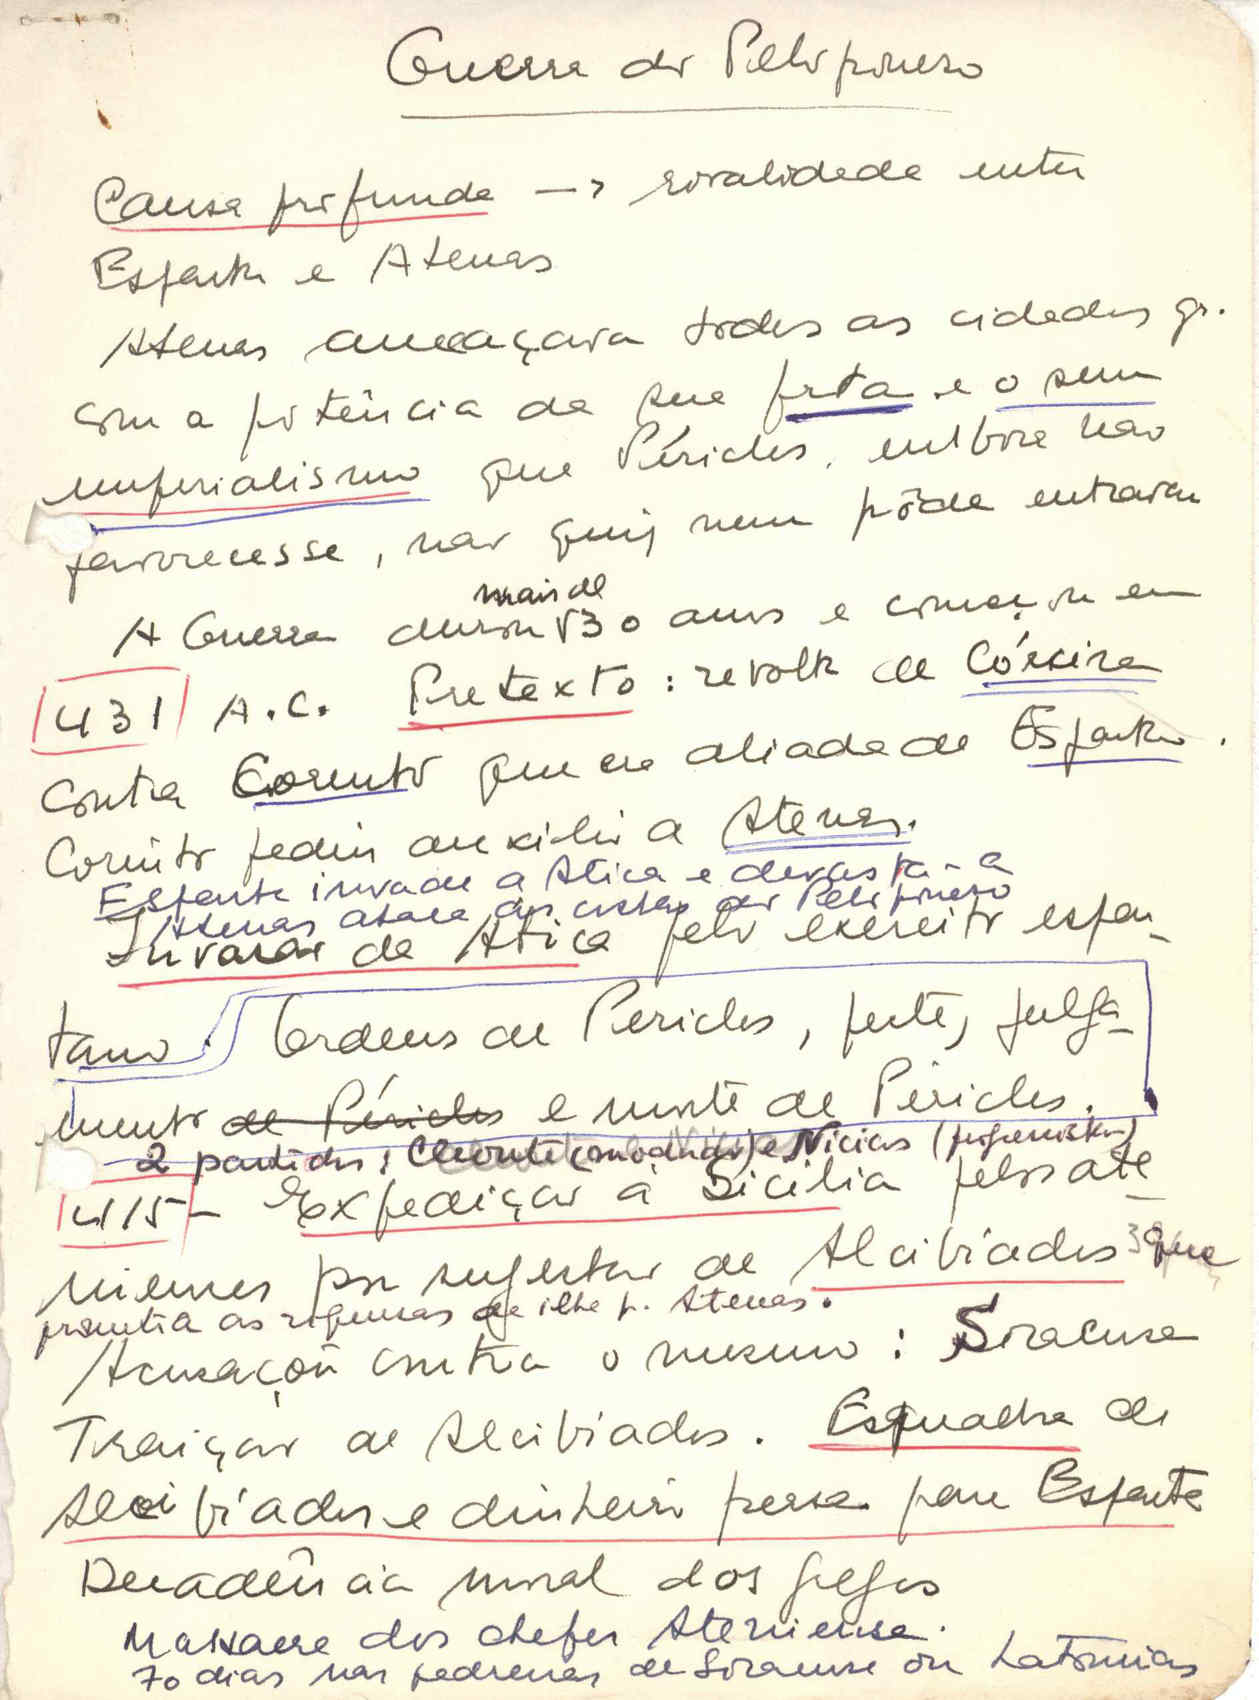 Guerra do Peloponeso
Causa profunda → rivalidade entre
Esparta e Atenas
Atenas ameaçava todas as cidades gr.
com a potência da sua frota e o seu
imperialismo que Péricles, embora não
favorecesse, não quis nem pôde entravar
mais de
A Guerra durou 30 anos e começou em
431 A.C. Pretexto: revolta de Córcira
contra Corinto que era aliada de Esparta.
Corinto pediu auxílio a Atenas.
Esparta invade a Atica e devasta-a
Atenas ataca as costas do Peloponeso
Invasão da Atica pelo exercito espar-
tano. Ordens de Pericles, peste, julga-
mento de Péricles e morte de Péricles.
2 partidos: Cleonte e Nicias
415 - Expedição à Sicília pelos ate-
nienses por sugestão de Alcibíades que
prometia as riquezas da ilha p. Atenas.
Acusação contra o mesmo: Siracusa
Traição de Alcibíades. Esquadra de
Alcibíades e dinheiro persa para Esparta
Decadência moral dos gregos
Massacre dos chefes Atenienses.
70 dias nas pedreiras de Siracusa ou Latomias